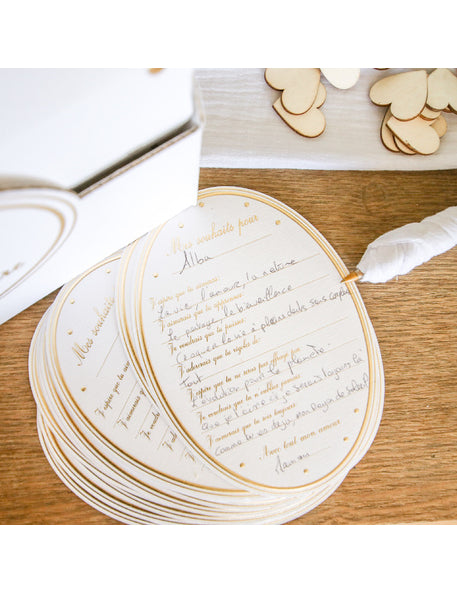 Mes souhaits pour
Alba
J'espère que tu aimeras:
La vie, l'amour, la nature
J'aimerais que tu apprennes:
Le partage, la bienveillance
Je voudrais que tu puisses:
Croquer la vie à pleine dents sans compter
J'aimerais que tu rigoles de:
Tout
J'espère que tu ne seras pas effrayé par:
L'évolution pour la planète
Je voudrais que tu n'oublies jamais:
Que je t'aime et je serai toujours là
J'aimerais que tu sois toujours:
Comme tu es déjà, mon Rayon de Soleil
Avec tout mon amour
Maman
Mes souhaits
J'espère que tu
J'aimerais
Je voudrais
J'aimerais
J'espère
Je